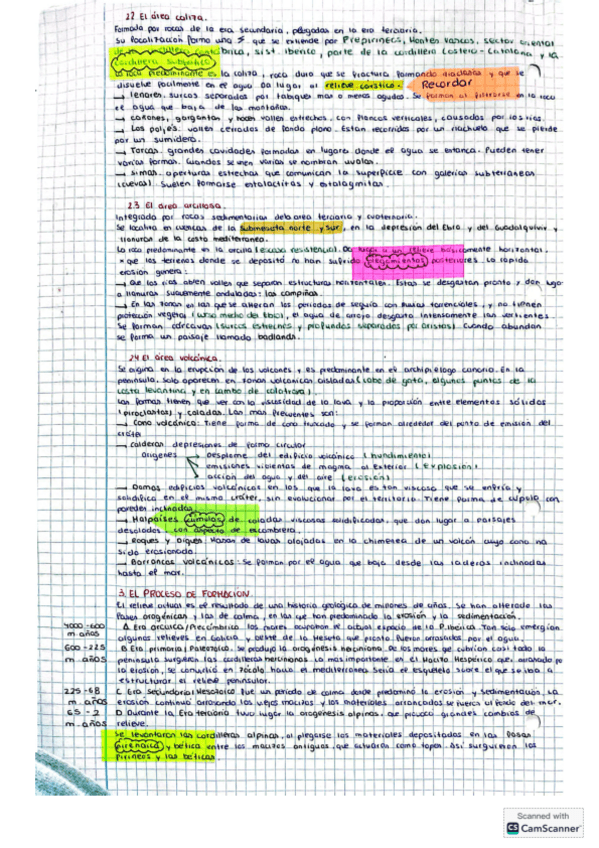 2.2 El área caliza.
Formada por rocas de la era secundaria, plegadas en la era terciaria.
Su localización forma una Z que se extiende por Prepirineos, Montes Vascos, sector oriental
de la cordillera Cantábrica, sist. Ibérico, parte de la cordillera Costero-Catalana y la
cordillera Subbética
La roca predominante es la caliza, roca dura que se fractura formando diaclasas y que se
disuelve facilmente en el agua. Da lugar al relieve cárstico. Recordar
→ Lenares. surcos separados por tabiques mas o menos agudos. Se forman al filtrarse en la roca
el agua que baja de las montañas.
→ Cañones, gargantas y hoces. valles estrechos, con flancos verticales, causados por los ríos.
→ Los poljés. valles cerrados de fondo plano. Estan recorridos por un riachuelo que se pierde
por un sumidero.
→ Torcas. grandes cavidades formadas en lugares donde el agua se estanca. Pueden tener
varias formas. Cuando se unen varias se nombran uvalas.
→ Simas. aperturas estrechas que comunican la superficie con galerías subterráneas
(cuevas). Suelen formarse estalactitas y estalagmitas.
2.3 El área arcillosa.
Integrada por rocas sedimentarias del área terciaria y cuaternaria.
Se localiza en cuencas de la submeseta norte y sur, en la depresión del Ebro y del Guadalquivir y
llanuras de la costa mediterránea.
La roca predominante es la arcilla (escasa resistencia). Da lugar a un relieve básicamente horizontal,
x que los terrenos donde se depositó no han sufrido plegamientos posteriores. La rápida
erosión genera:
→ Que los ríos abren valles que separan estructuras horizontales. Estas se desgastan pronto y dan lugar
a llanuras suavemente onduladas: las campiñas.
→ En las zonas en las que se alteran los periodos de sequía con lluvias torrenciales, y no tienen
protección vegetal (curso medio del Ebro), el agua de arroyo desgasta intensamente las vertientes.
Se forman cárcavas (surcos estrechos y profundos separados por aristas). Cuando abundan
se forma un paisaje llamado badlands.
2.4 El área volcánica.
Se origina en la erupción de los volcanes y es predominante en el archipiélago canario. En la
península, solo aparecen en zonas volcánicas aisladas (cabo de gata, algunos puntos de la
costa levantina y en Campo de Calatrava).
Las formas tienen que ver con la viscosidad de la lava y la proporción entre elementos sólidos
(piroclastos) y coladas. Las más frecuentes son:
→ Cono volcánico: Tiene forma de cono truncado y se forman alrededor del punto de emisión del
cráter
→ Calderas depresiones de forma circular
Orígenes → Desplome del edificio volcánico (hundimiento)
→ emisiones violentas de magma al exterior (Explosión)
→ acción del agua y del aire (erosión)
→ Domos edificios volcánicos en los que la lava es tan viscosa que se enfría y
solidifica en el mismo cráter, sin evolucionar por el territorio. Tiene forma de cúpula con
paredes inclinadas.
→ Malpaíses cúmulos de coladas viscosas solidificadas, que dan lugar a paisajes
desolados con aspecto de escombrera.
→ Roques y Diques masas de lavas alojadas en la chimenea de un volcán cuyo cono ha
sido erosionado.
→ Barrancos volcánicos: Se forman por el agua que baja desde las laderas inclinadas
hasta el mar.
3. EL PROCESO DE FORMACIÓN.
El relieve actual es el resultado de una historia geológica de millones de años. Se han alterado las
fases orogénicas y las de calma, en las que han predominado la erosión y la sedimentación.
4000-600 m. años A. Era Arcaica/Precámbrico. los mares ocuparon el actual espacio de la P. Ibérica. Tan solo emergían
algunos relieves en Galicia y oeste de la Meseta que pronto fueron arrasados por el agua.
600-225 m. años B. Era primaria/Paleozoico. Se produjo la orogénesis herciniana. De los mares que cubrían casi toda la
península surgieron las cordilleras hercinianas. La más importante es el Macizo Hespérico que, arrasado por
la erosión, se convirtió en zócalo hacia el mediterráneo. Sería el esqueleto sobre el que se iba a
estructurar el relieve peninsular.
225-68 m. años C. Era secundaria/Mesozoico. Fue un periodo de calma donde predominó la erosión y sedimentación. La
erosión continuó arrasando los viejos macizos y los materiales arrancados se fueron al fondo del mar.
65-2 m. años D. Durante la Era terciaria tuvo lugar la orogénesis alpina, que provocó grandes cambios de
relieve.
Se levantaron las cordilleras alpinas, al plegarse los materiales depositados en las fosas
pirenaica y bética entre los macizos antiguos, que actuaron como topes. Así surguieron los
Pirineos y las béticas.
Scanned with
CS CamScanner